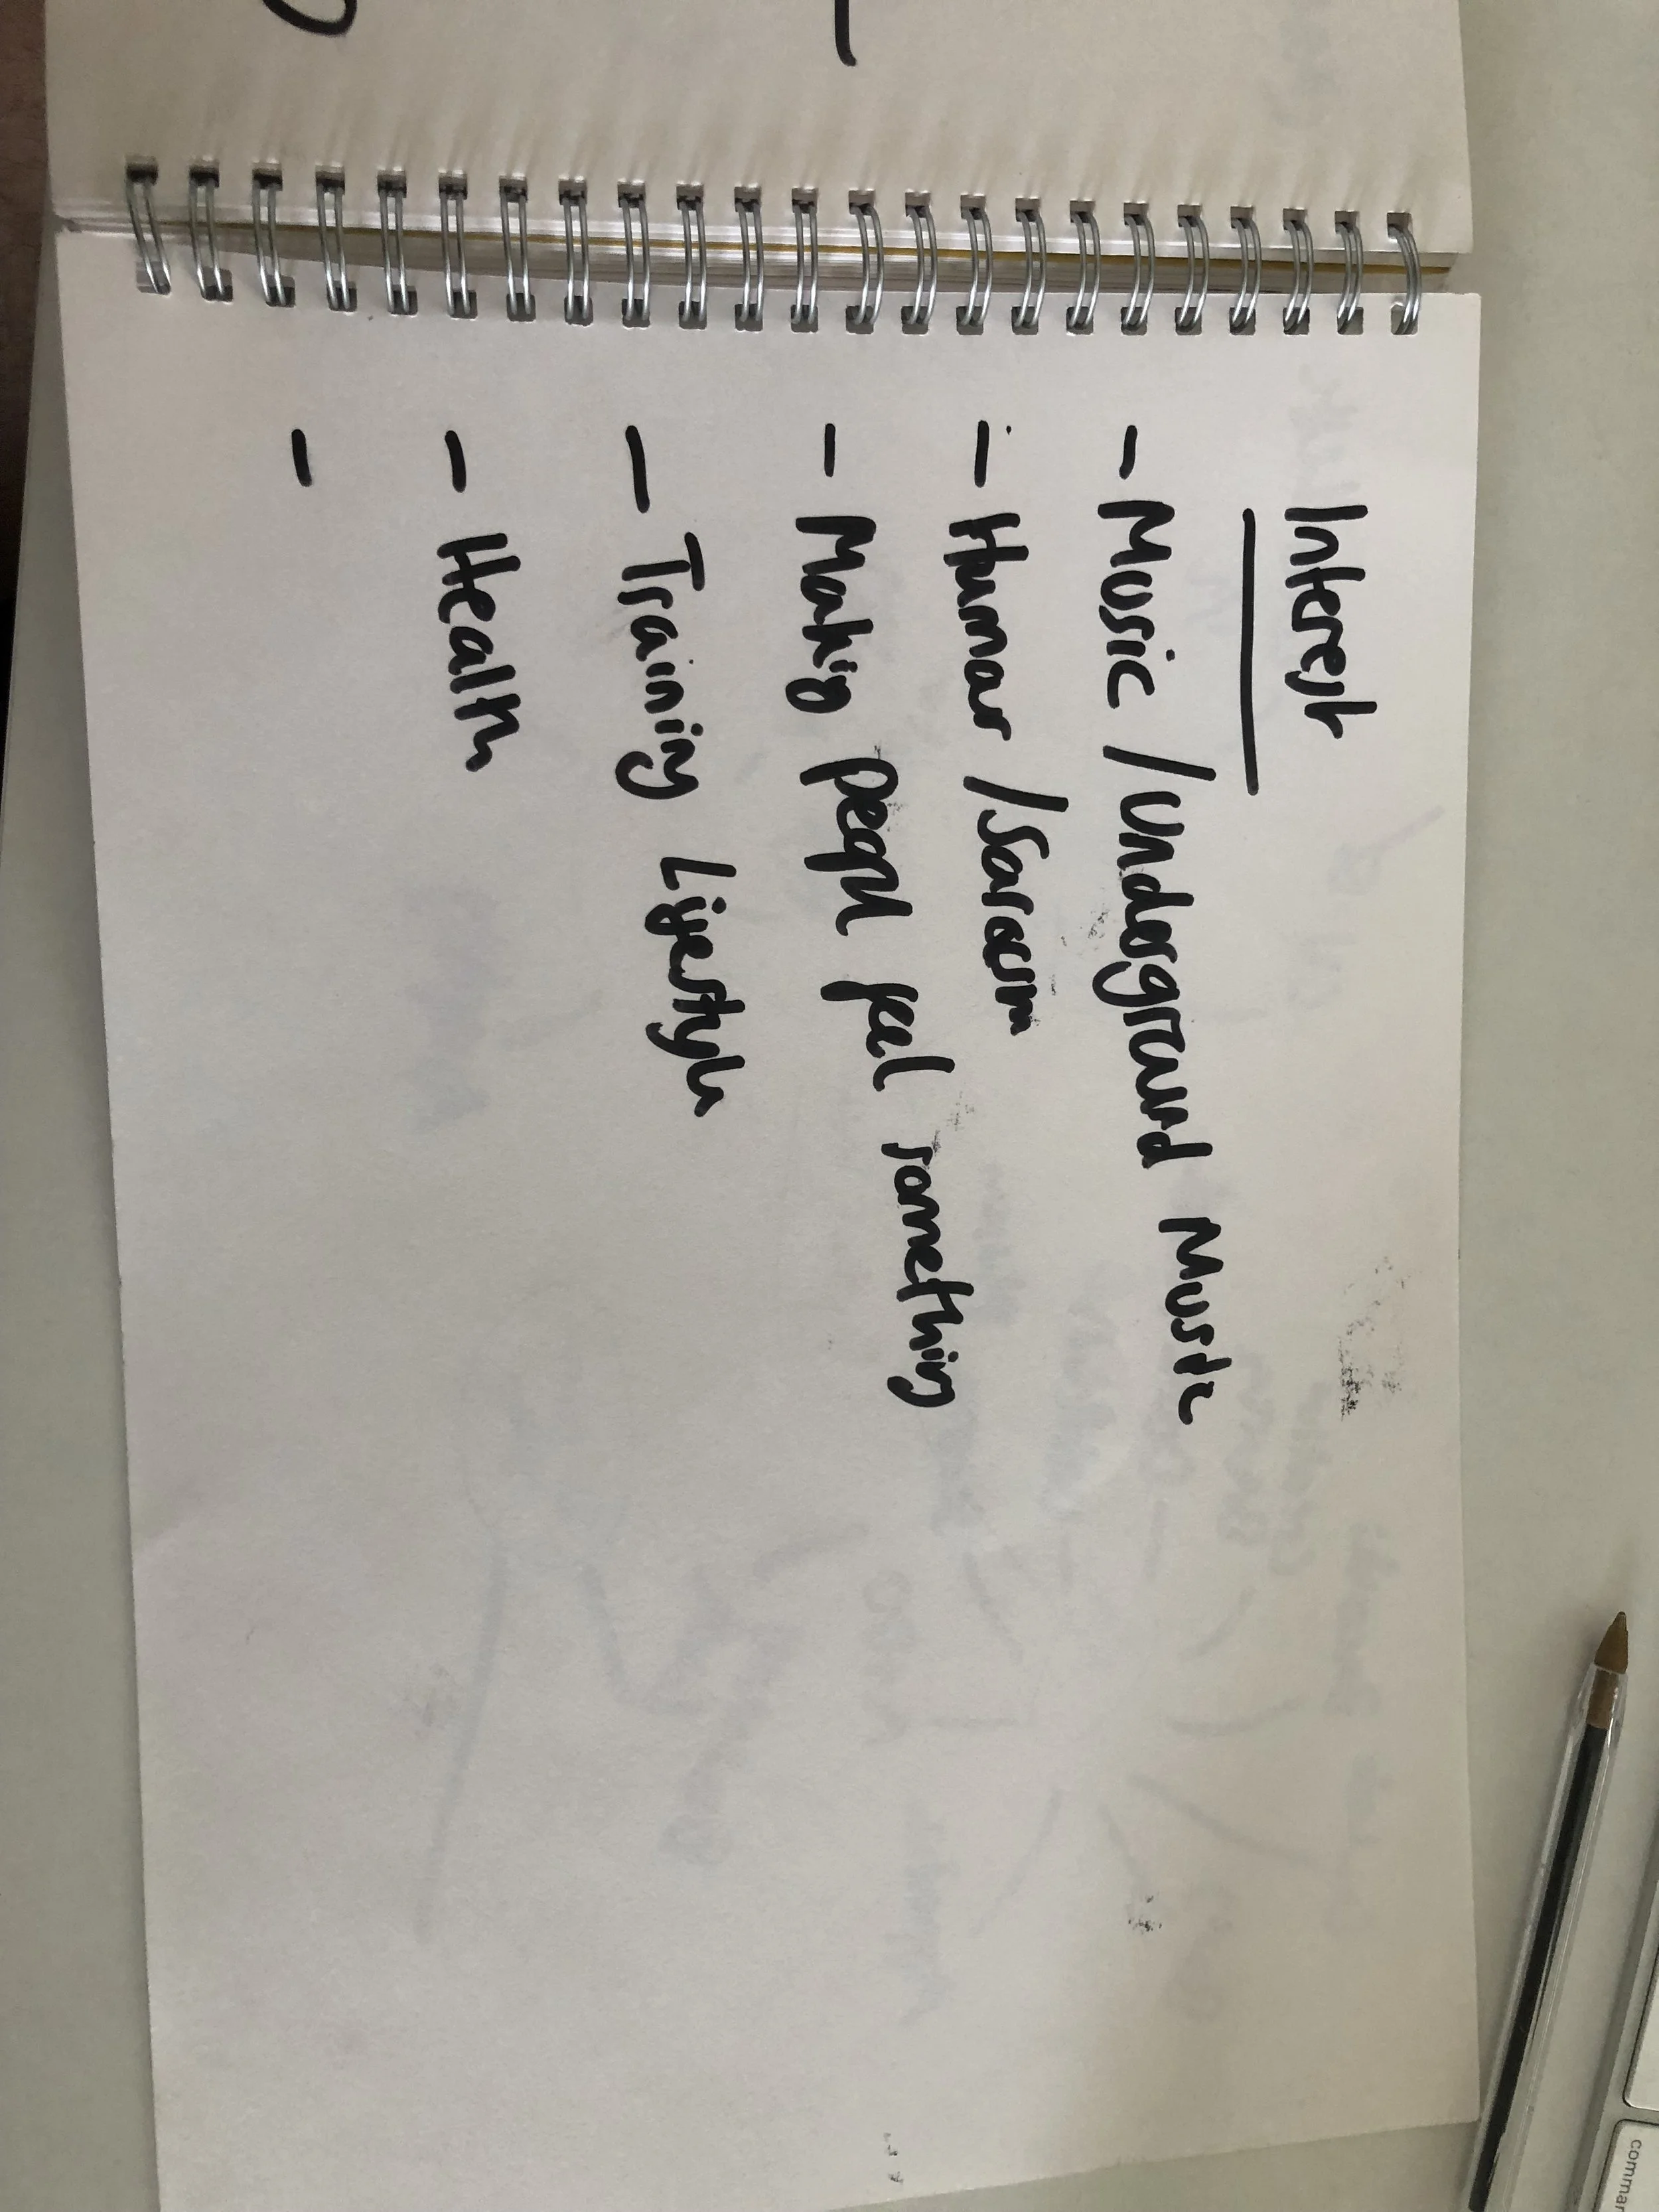 Interest
- Music / Underground Music
- Humor / Sarcasm
- Making people feel something
- Training Lifestyle
- Health
-
comma